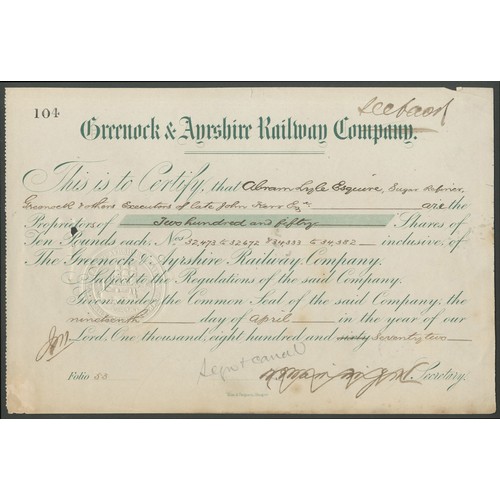 104
see back
Greenock & Ayrshire Railway Company.
This is to Certify, that Abram Lyle Esquire, Sugar Refiner,
Greenock & others Executors of late John Kerr Esqr. are the
Proprietors of Two hundred and fifty Shares of
Ten Pounds each. Nos 32,473 to 32,672 & 34,333 to 34,382 inclusive, of
The Greenock & Ayrshire Railway Company,
Subject to the Regulations of the said Company.
Given under the Common Seal of the said Company, the
nineteenth day of April in the year of our
Lord, One thousand, eight hundred and sixty Seventy two
Folio 53
Secretary.